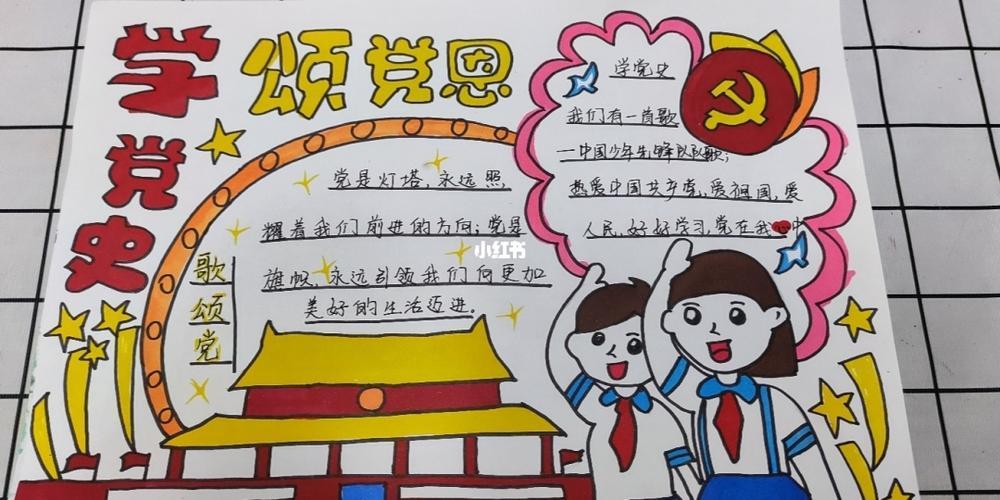 学党史
颂党恩
歌颂党
党是灯塔，永远照
耀着我们前进的方向；党是
旗帜，永远引领我们向更加
美好的生活迈进。
学党史
我们有一首歌
—中国少年先锋队队歌；
热爱中国共产党，爱祖国，爱
人民，好好学习，党在我心中
小红书